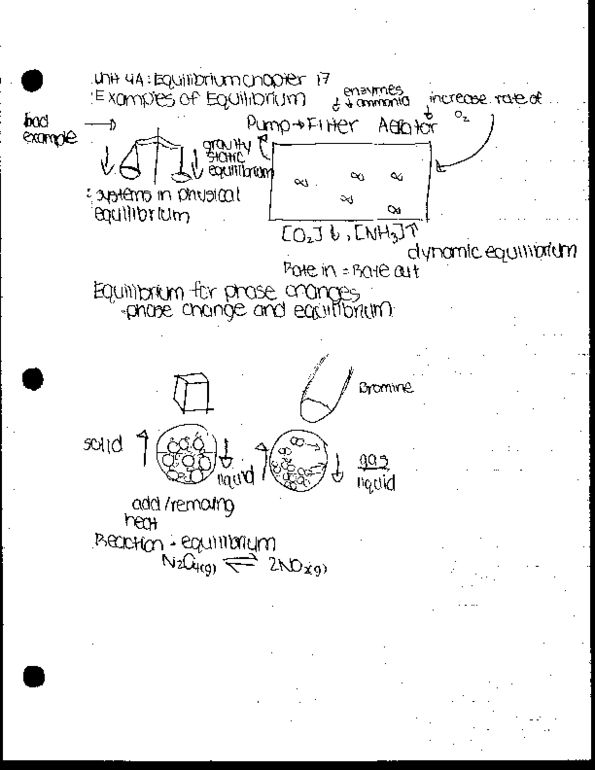 Unit 4A: Equilibrium chapter 17
Examples of Equilibrium
bad
example
gravity
static
equilibrium
: systems in physical
equilibrium
enzymes
↓ ammonia
increase rate of
O2
Pump → Filter Aerator
[O2]↓, [NH3]↑
dynamic equilibrium
Rate in = Rate out
Equilibrium for phase changes
-phase change and equilibrium
Bromine
solid
liquid
gas
liquid
add/removing
heat
Reaction - equilibrium
N2O4(g) ⇌ 2NO2(g)